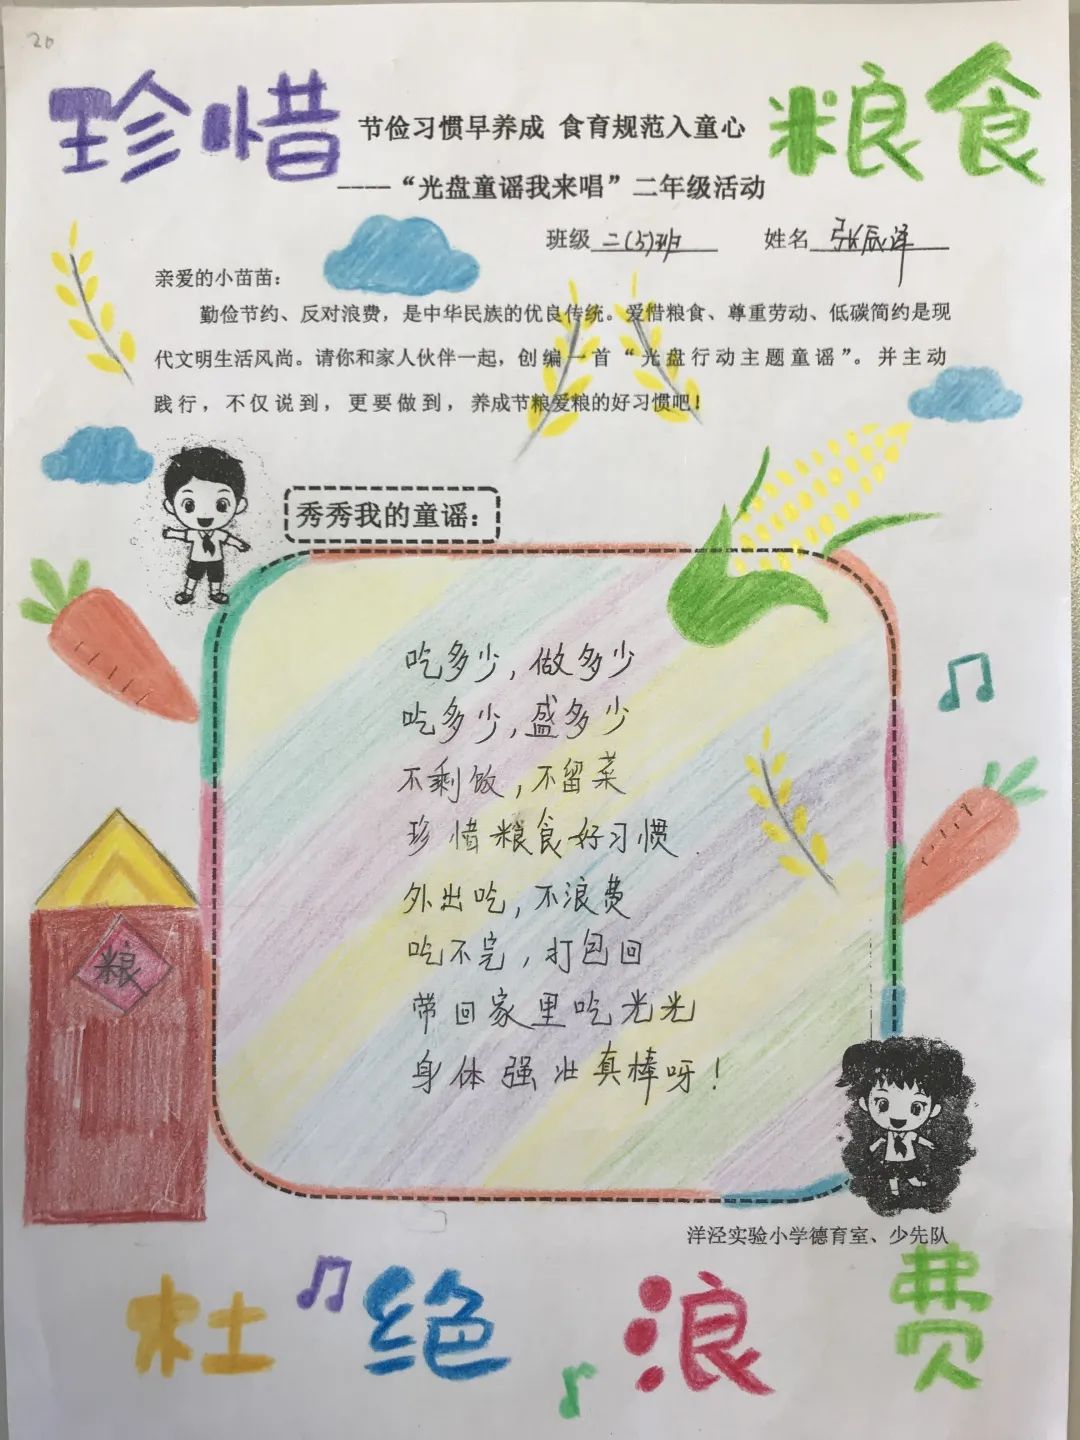 20
珍惜 粮食
节俭习惯早养成 食育规范入童心
----“光盘童谣我来唱”二年级活动
班级 二(5)班 姓名 张辰泽
亲爱的小苗苗：
勤俭节约、反对浪费，是中华民族的优良传统。爱惜粮食、尊重劳动、低碳简约是现
代文明生活风尚。请你和家人伙伴一起，创编一首“光盘行动主题童谣”。并主动
践行，不仅说到，更要做到，养成节粮爱粮的好习惯吧！
秀秀我的童谣：
吃多少，做多少
吃多少，盛多少
不剩饭，不留菜
珍惜粮食好习惯
外出吃，不浪费
吃不完，打包回
带回家里吃光光
身体强壮真棒呀！
粮
洋泾实验小学德育室、少先队
杜绝浪费